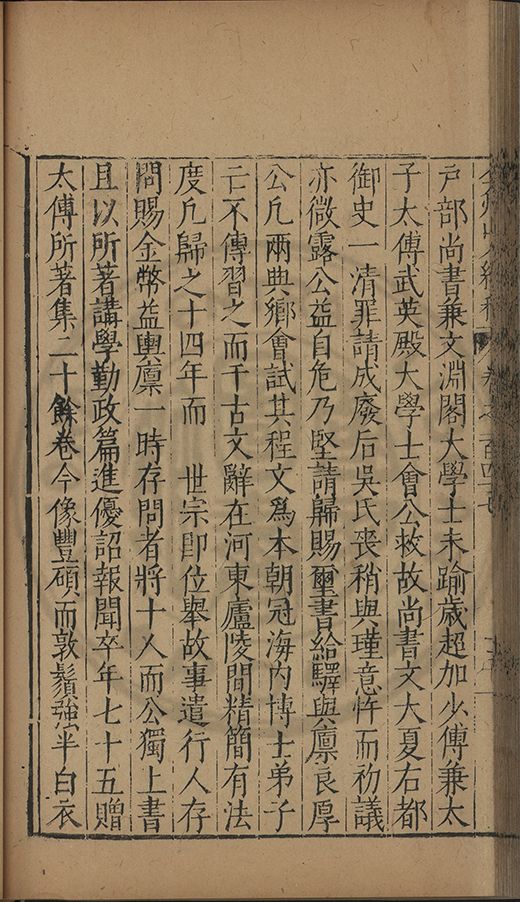 戶部尚書兼文淵閣大學士未踰歲超加少傅兼太
子太傅武英殿大學士會公救故尚書文大夏右都
御史一清罪請成廢后吳氏喪稍與瑾意忤而初議
亦微露公益自危乃堅請歸賜璽書給驛與廩良厚
公凡兩典鄉會試其程文爲本朝冠海內博士弟子
亡不傳習之而于古文辭在河東廬陵間精簡有法
度凡歸之十四年而 世宗卽位舉故事遣行人存
問賜金幣益輿廩一時存問者將十人而公獨上書
且以所著講學勤政篇進優詔報聞卒年七十五贈
太傅所著集二十餘卷今像豐碩而敦鬚強半白衣